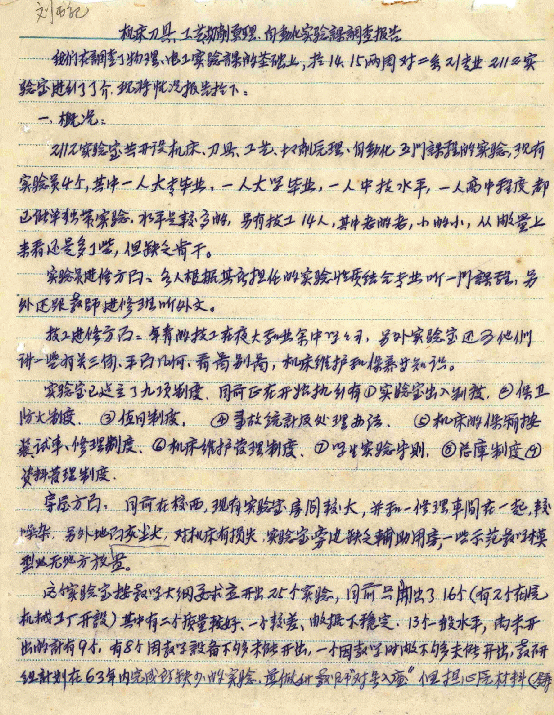 刘西记
机床刀具、工艺切削原理、自动化实验课調查报告
我们在調查了物理、电工实验课的基础上，于14、15两周对二系21专业2112实
验室进行了了介，现将状况报告于下：
一、概况：
2112实验室共开设机床、刀具、工艺、切削原理、自动化五門課程的实验，现有
实验员4个，其中一人大专毕业，一人大学毕业，一人中技水平，一人高中程度都
已能单独带实验，水平是較高的，另有技工14人，其中老的老，小的小，从数量上
来看还是多了些，但缺乏骨干。
实验员进修方面：各人根据其所担任的实验性质结合专业听一門課程，另
外还跟教师进修班听外文。
技工进修方面：年青的技工在夜大和业余中学学习，另外实验室还为他们
讲一些有关三角、平面几何、看图制图，机床维护和保养等知识。
实验室已建立了九项制度，目前正在开始执行有①实验室出入制度，②保卫
防火制度，③值日制度，④事故統計及处理办法，⑤机床的保領按
装试车、修理制度，⑥机床维护管理制度，⑦学生实验守则，⑧仓庫制度⑨
資料管理制度。
房屋方面：目前在校西，现有实验室房间較大，并和一修理车间在一起，較
噪杂，另外地面灰尘大，对机床有损失，实验室旁边缺乏輔助用房，一些示范教学模
型也无地方放置。
这个实验室按教学大綱要求应开出25个实验，目前只開出了16个（有2个在院
机械工厂开設）其中有二个质量較好、一个較差、数据不穩定，13个一般水平，尚未开
出的計有9个，有8个因教学設备不够未能开出，一个因教学时数不够未能开出，教研
組計划在63年内完成所缺少的实验，并做到教师"对号入座"但担心原材料（鋼